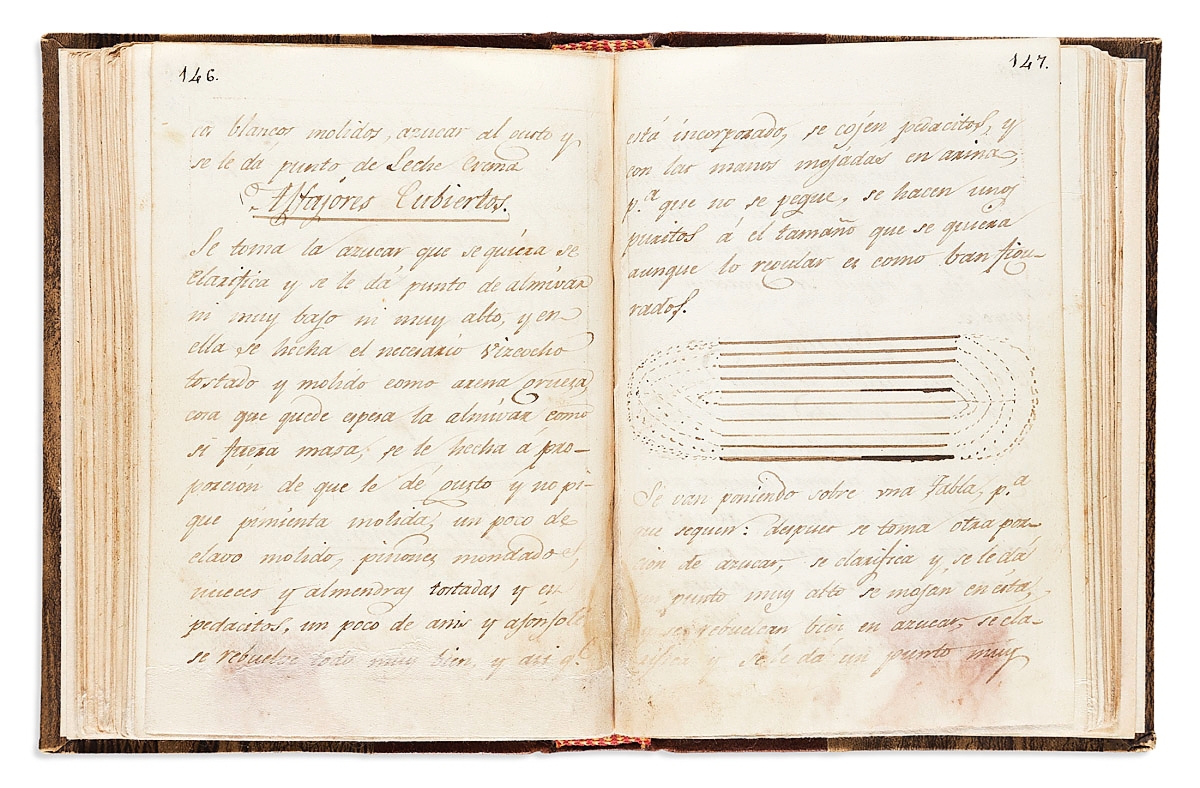 146.
co blancos molidos, azucar al gusto y
se le dá punto de Leche Crema
Alfajóres Cubiertos.
Se toma la azucar que se quiera se
clarifica y se le dá punto de almivar
ni muy bajo ni muy alto, y en
ella se hecha el necesario vizcocho
tostado y molido como arina gruesa
cosa que quede espesa la almivar como
si fuera masa, se le hecha á pro-
porcion de que le dé gusto y no pi-
que pimienta molida, un poco de
clavo molido, piñones mondados,
nueces y almendras tostadas y en
pedacitos, un poco de anis y ajonjolí
se rebuelve todo muy bien, y asi q.e
147.
está incorporado, se cojen pedacitos, y
con las manos mojadas en arina,
p.a que no se pegue, se hacen unos
puritos á el tamaño que se quiera
aunque lo regular es como ban figu-
rados.
Se van poniendo sobre una Tabla, p.a
que sequen: despues se toma otra por-
cion de azucar, se clarifica y se le dá
un punto muy alto se mojan en esta,
y se rebuelcan bien en azucar, se cla-
rifica y se le dá un punto muy